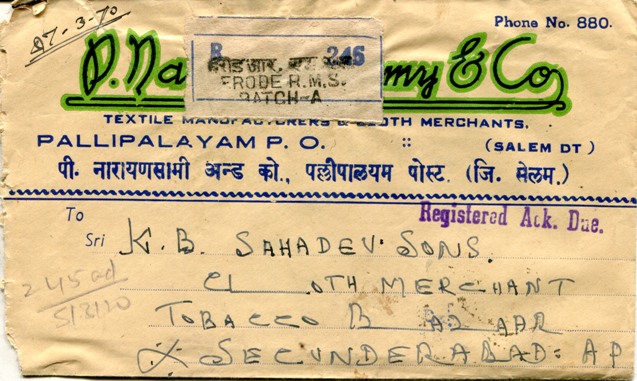 27-3-70
Phone No. 880.
R 246
इरोड आर. एम. एस.
ERODE R.M.S.
BATCH-A
P. Na my & Co
TEXTILE MANUFACTURERS & CLOTH MERCHANTS.
PALLIPALAYAM P. O. :: (SALEM DT)
पी. नारायणसामी अन्ड को., पल्लीपालयम पोस्ट. (जि. सेलम.)
Registered Ack. Due.
To
Sri K. B. SAHADEV SONS.
CLOTH MERCHANT
TOBACCO BAZAAR
SECUNDERABAD: AP